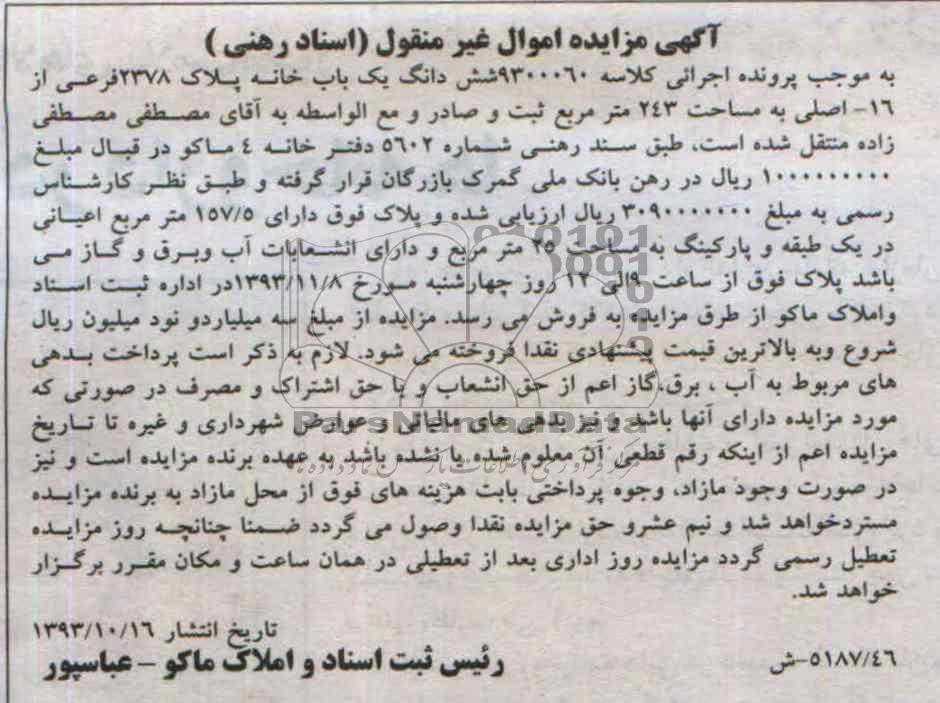 آگهی مزایده اموال غیر منقول (اسناد رهنی)
به موجب پرونده اجرائی کلاسه ۹۳۰۰۰۶۰شش دانگ یک باب خانه پلاک ۲۳۷۸فرعی از
۱۶- اصلی به مساحت ۲۴۳ متر مربع ثبت و صادر و مع الواسطه به آقای مصطفی مصطفی
زاده منتقل شده است، طبق سند رهنی شماره ۵۶۰۲ دفتر خانه ٤ ماکو در قبال مبلغ
۱۰۰۰۰۰۰۰۰۰۰ ریال در رهن بانک ملی گمرک بازرگان قرار گرفته و طبق نظر کارشناس
رسمی به مبلغ ۳۰۹۰۰۰۰۰۰۰ ریال ارزیابی شده و پلاک فوق دارای ۱۵۷/۵ متر مربع اعیانی
در یک طبقه و پارکینگ به مساحت ۲۵ متر مربع و دارای انشعابات آب وبرق و گاز می
باشد پلاک فوق از ساعت ۹الی ۱۲ روز چهارشنبه مورخ ۱۳۹۳/۱۱/۸در اداره ثبت اسناد
واملاک ماکو از طرق مزایده به فروش می رسد. مزایده از مبلغ سه میلیاردو نود میلیون ریال
شروع وبه بالاترین قیمت پیشنهادی نقدا فروخته می شود. لازم به ذکر است پرداخت بدهی
های مربوط به آب ، برق،گاز اعم از حق انشعاب و یا حق اشتراک و مصرف در صورتی که
مورد مزایده دارای آنها باشد و نیز بدهی های مالیاتی و عوارض شهرداری و غیره تا تاریخ
مزایده اعم از اینکه رقم قطعی آن معلوم شده یا نشده باشد به عهده برنده مزایده است و نیز
در صورت وجود مازاد، وجوه پرداختی بابت هزینه های فوق از محل مازاد به برنده مزایده
مستردخواهد شد و نیم عشرو حق مزایده نقدا وصول می گردد ضمنا چنانچه روز مزایده
تعطیل رسمی گردد مزایده روز اداری بعد از تعطیلی در همان ساعت و مکان مقرر برگزار
خواهد شد.
تاریخ انتشار ۱۳۹۳/۱۰/۱۶
۵۱۸۷/٤٦-ش
رئیس ثبت اسناد و املاک ماکو - عباسپور
ParsNamadData